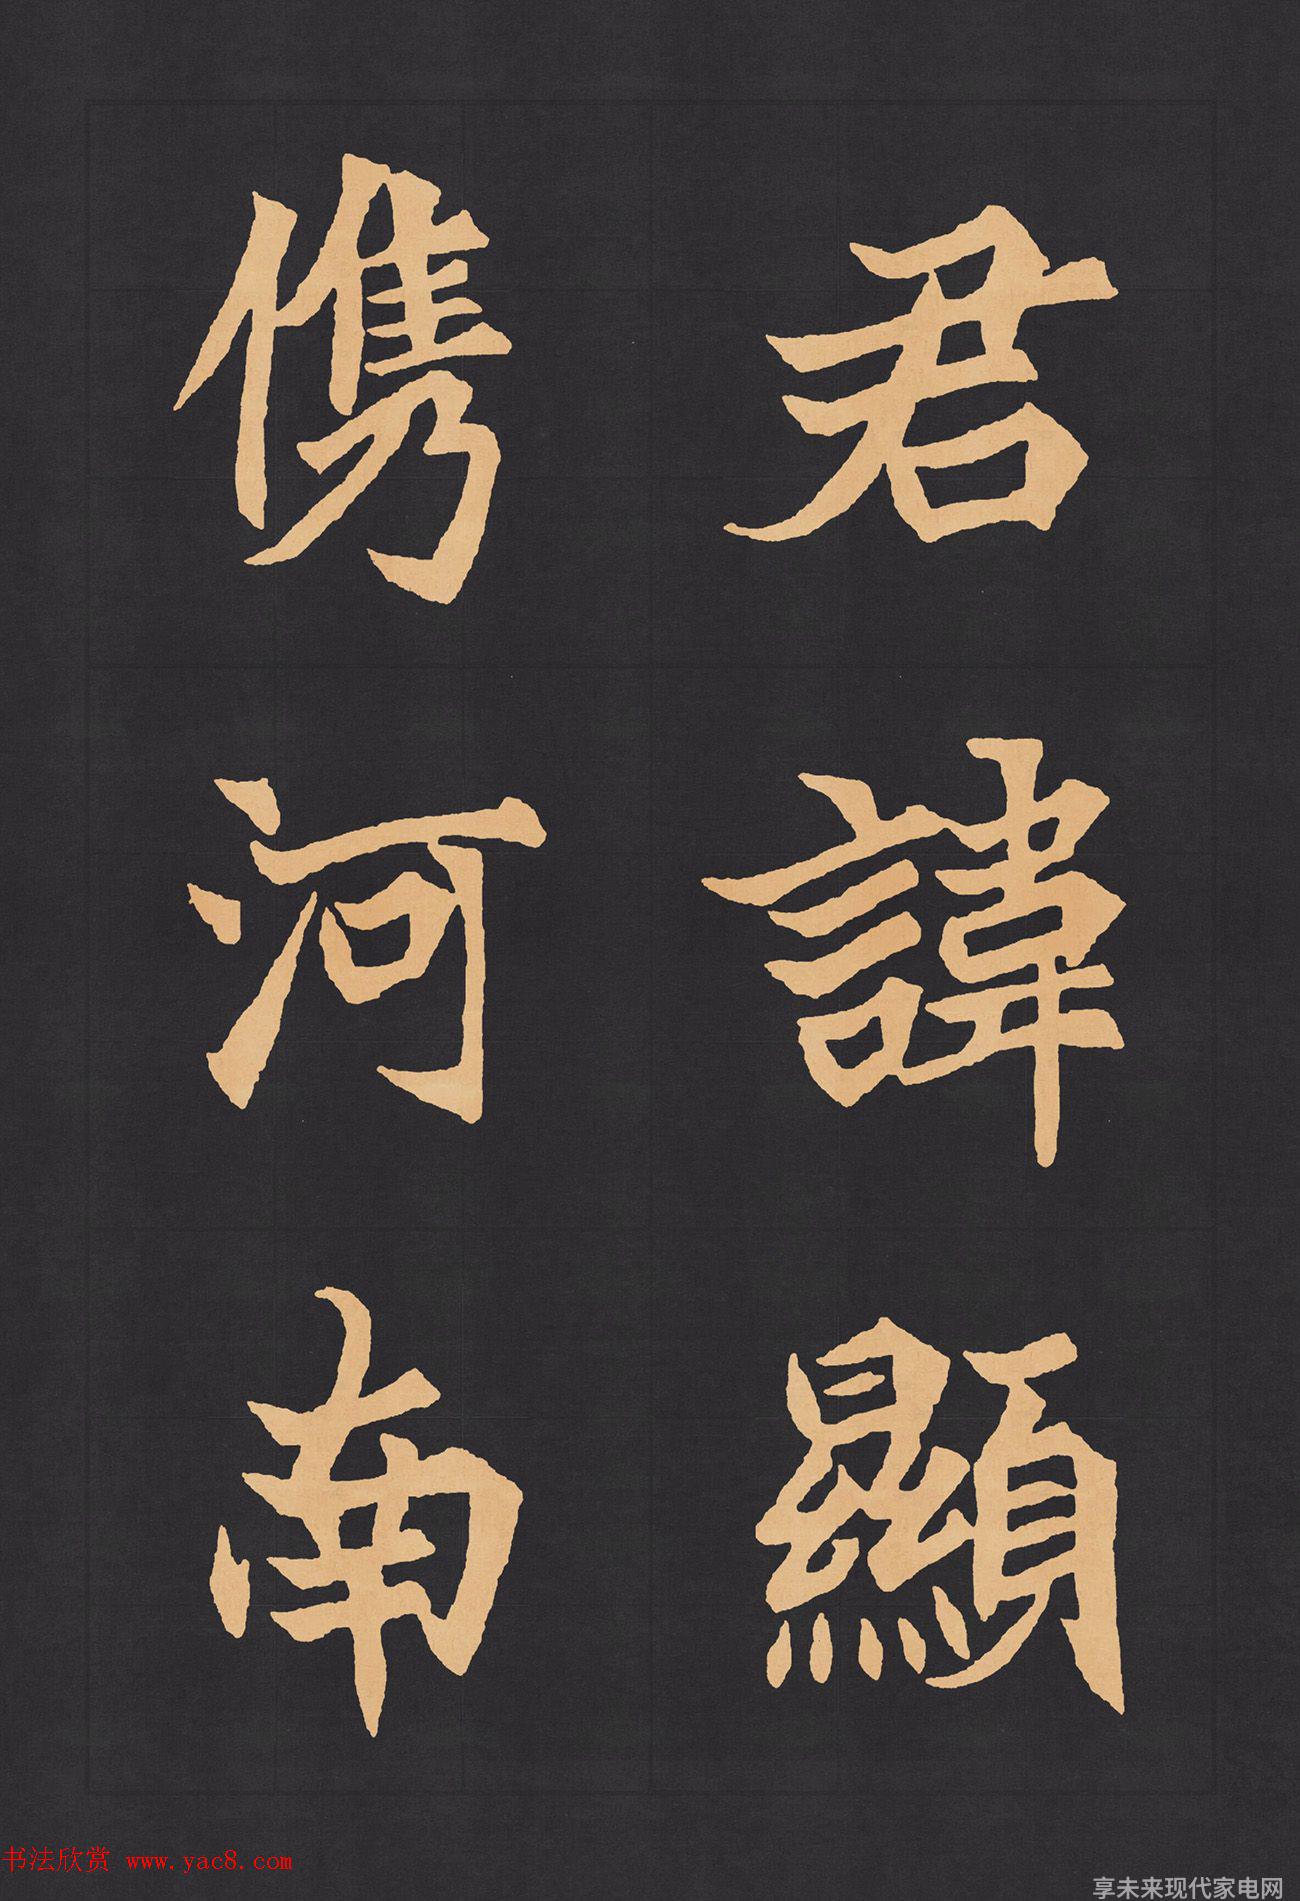 君諱顯
儁河南
书法欣赏 www.yac8.com
享未来现代家电网